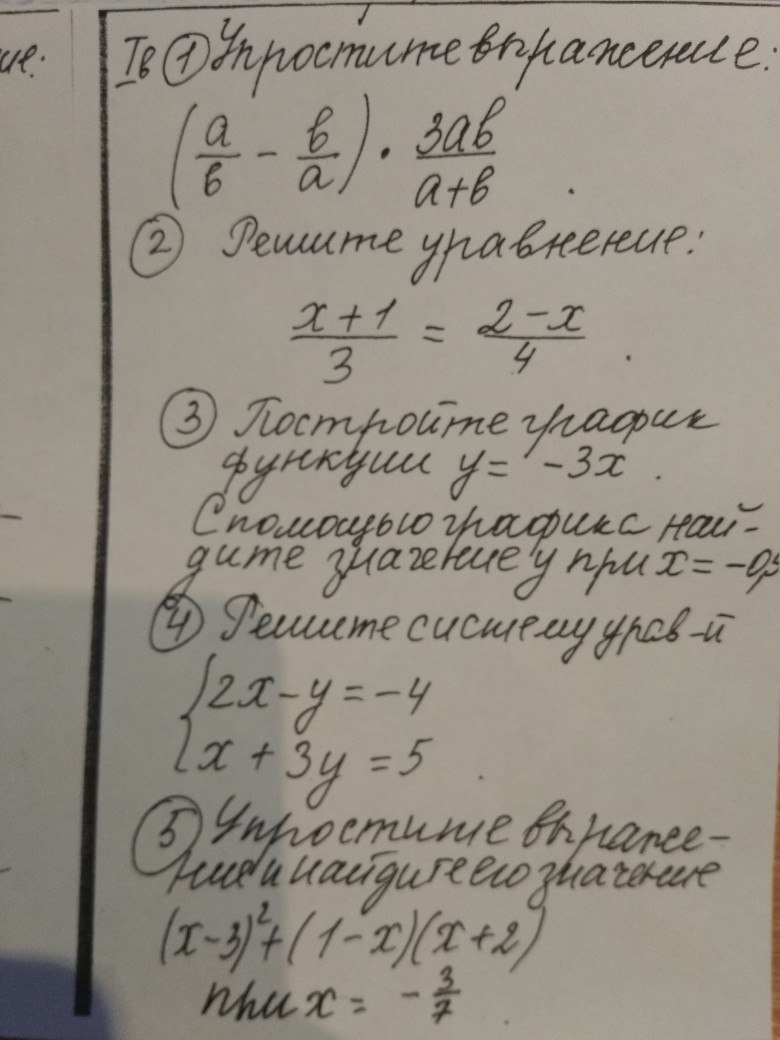 ие:
Iв ① Упростите выражение:
(a/в - в/a) · 3ав/(a+в).
② Решите уравнение:
(x+1)/3 = (2-x)/4.
③ Постройте график
функции y= -3x.
С помощью графика най-
дите значение y при x= -0,5
④ Решите систему урав-й
{2x-y=-4
{x+3y=5.
⑤ Упростите выраже-
ние и найдите его значение
(x-3)²+(1-x)(x+2)
при x= -3/7.